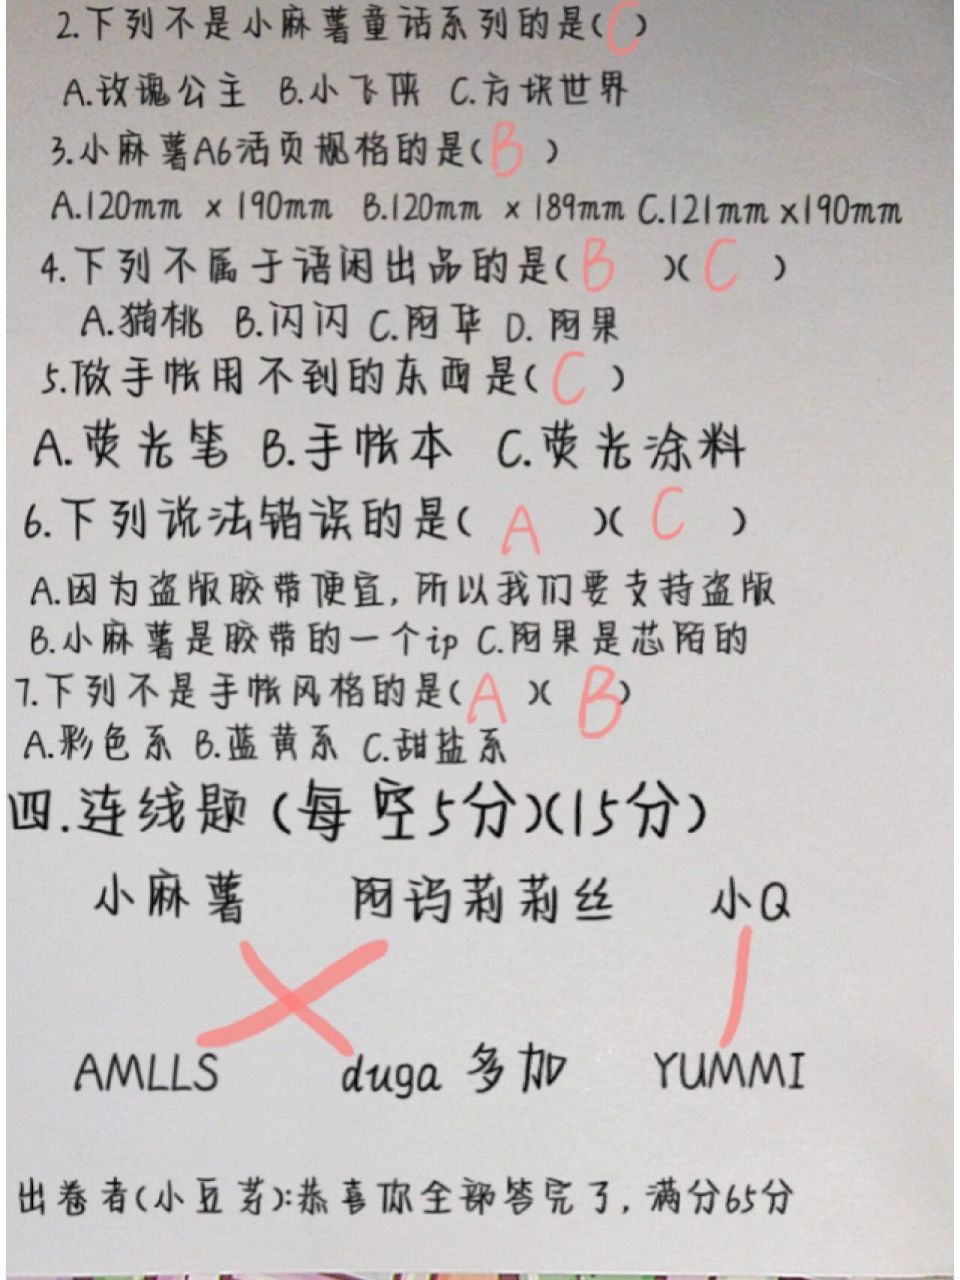 2.下列不是小麻薯童话系列的是(C)
A.玫瑰公主 B.小飞侠 C.方块世界
3.小麻薯A6活页规格的是(B)
A.120mm x 190mm B.120mm x 189mm C.121mm x190mm
4.下列不属于语闲出品的是(B)(C)
A.猫桃 B.闪闪 C.阿华 D.阿果
5.做手帐用不到的东西是(C)
A.荧光笔 B.手帐本 C.荧光涂料
6.下列说法错误的是(A)(C)
A.因为盗版胶带便宜,所以我们要支持盗版
B.小麻薯是胶带的一个ip C.阿果是芯陌的
7.下列不是手帐风格的是(A)(B)
A.彩色系 B.蓝黄系 C.甜盐系
四.连线题(每空5分)(15分)
小麻薯 阿玛莉莉丝 小Q
AMLLS duga 多加 YUMMI
出卷者(小豆芽):恭喜你全部答完了,满分65分